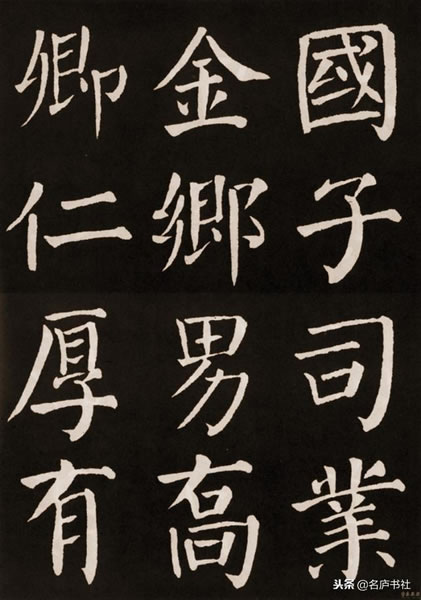 國子司業
金鄉男喬
卿仁厚有
头条 @名庐书社